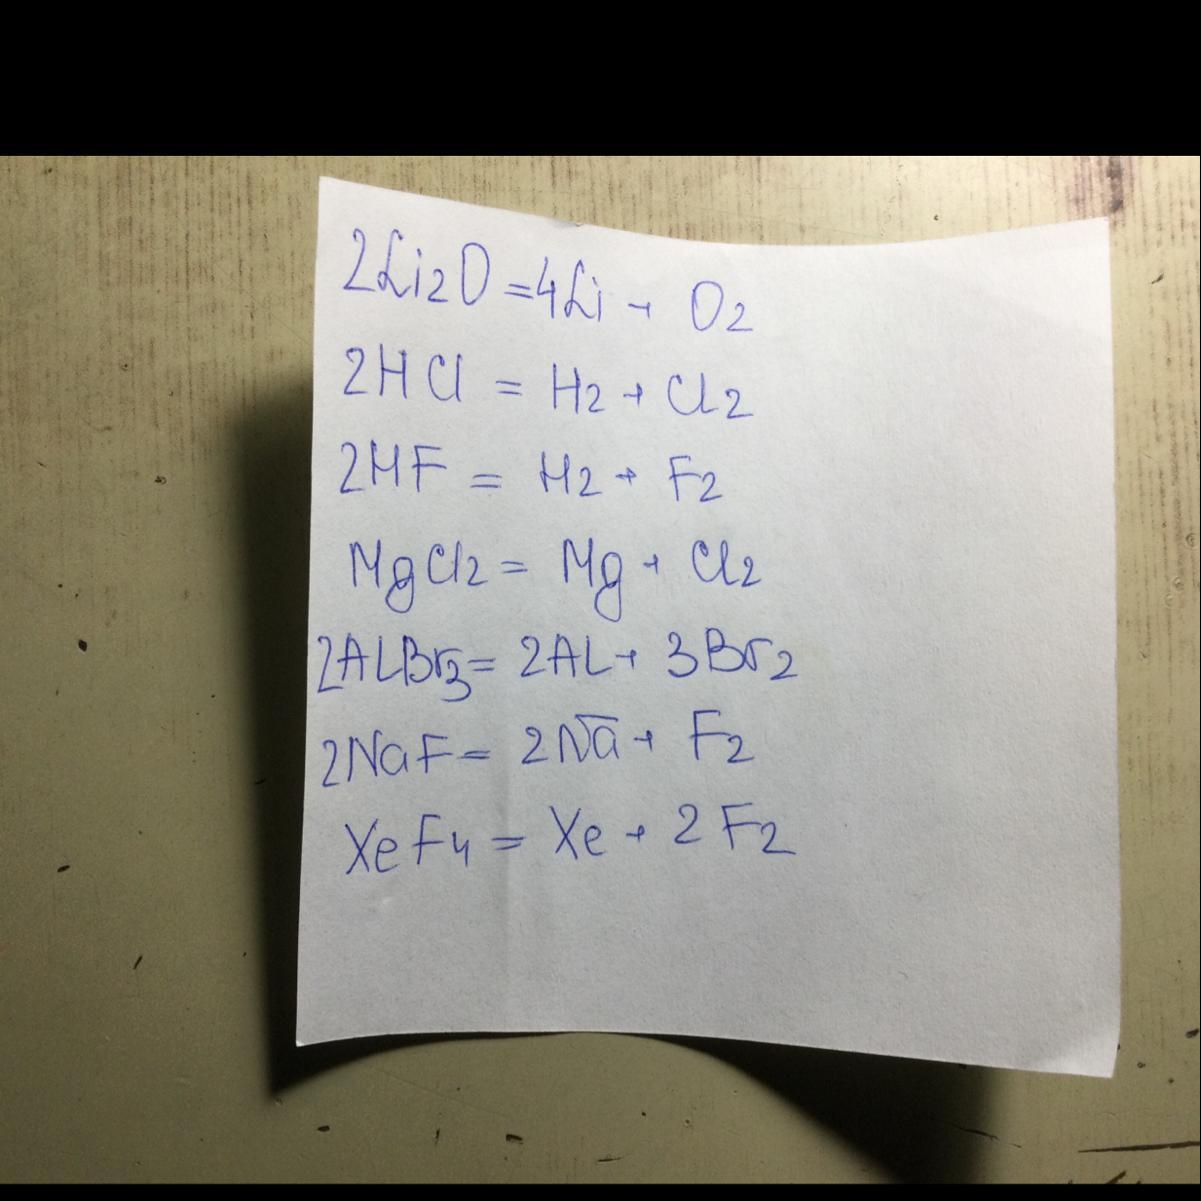 2Li2O = 4Li + O2
2HCl = H2 + Cl2
2HF = H2 + F2
MgCl2 = Mg + Cl2
2ALBr3 = 2AL + 3Br2
2NaF = 2Na + F2
XeF4 = Xe + 2F2